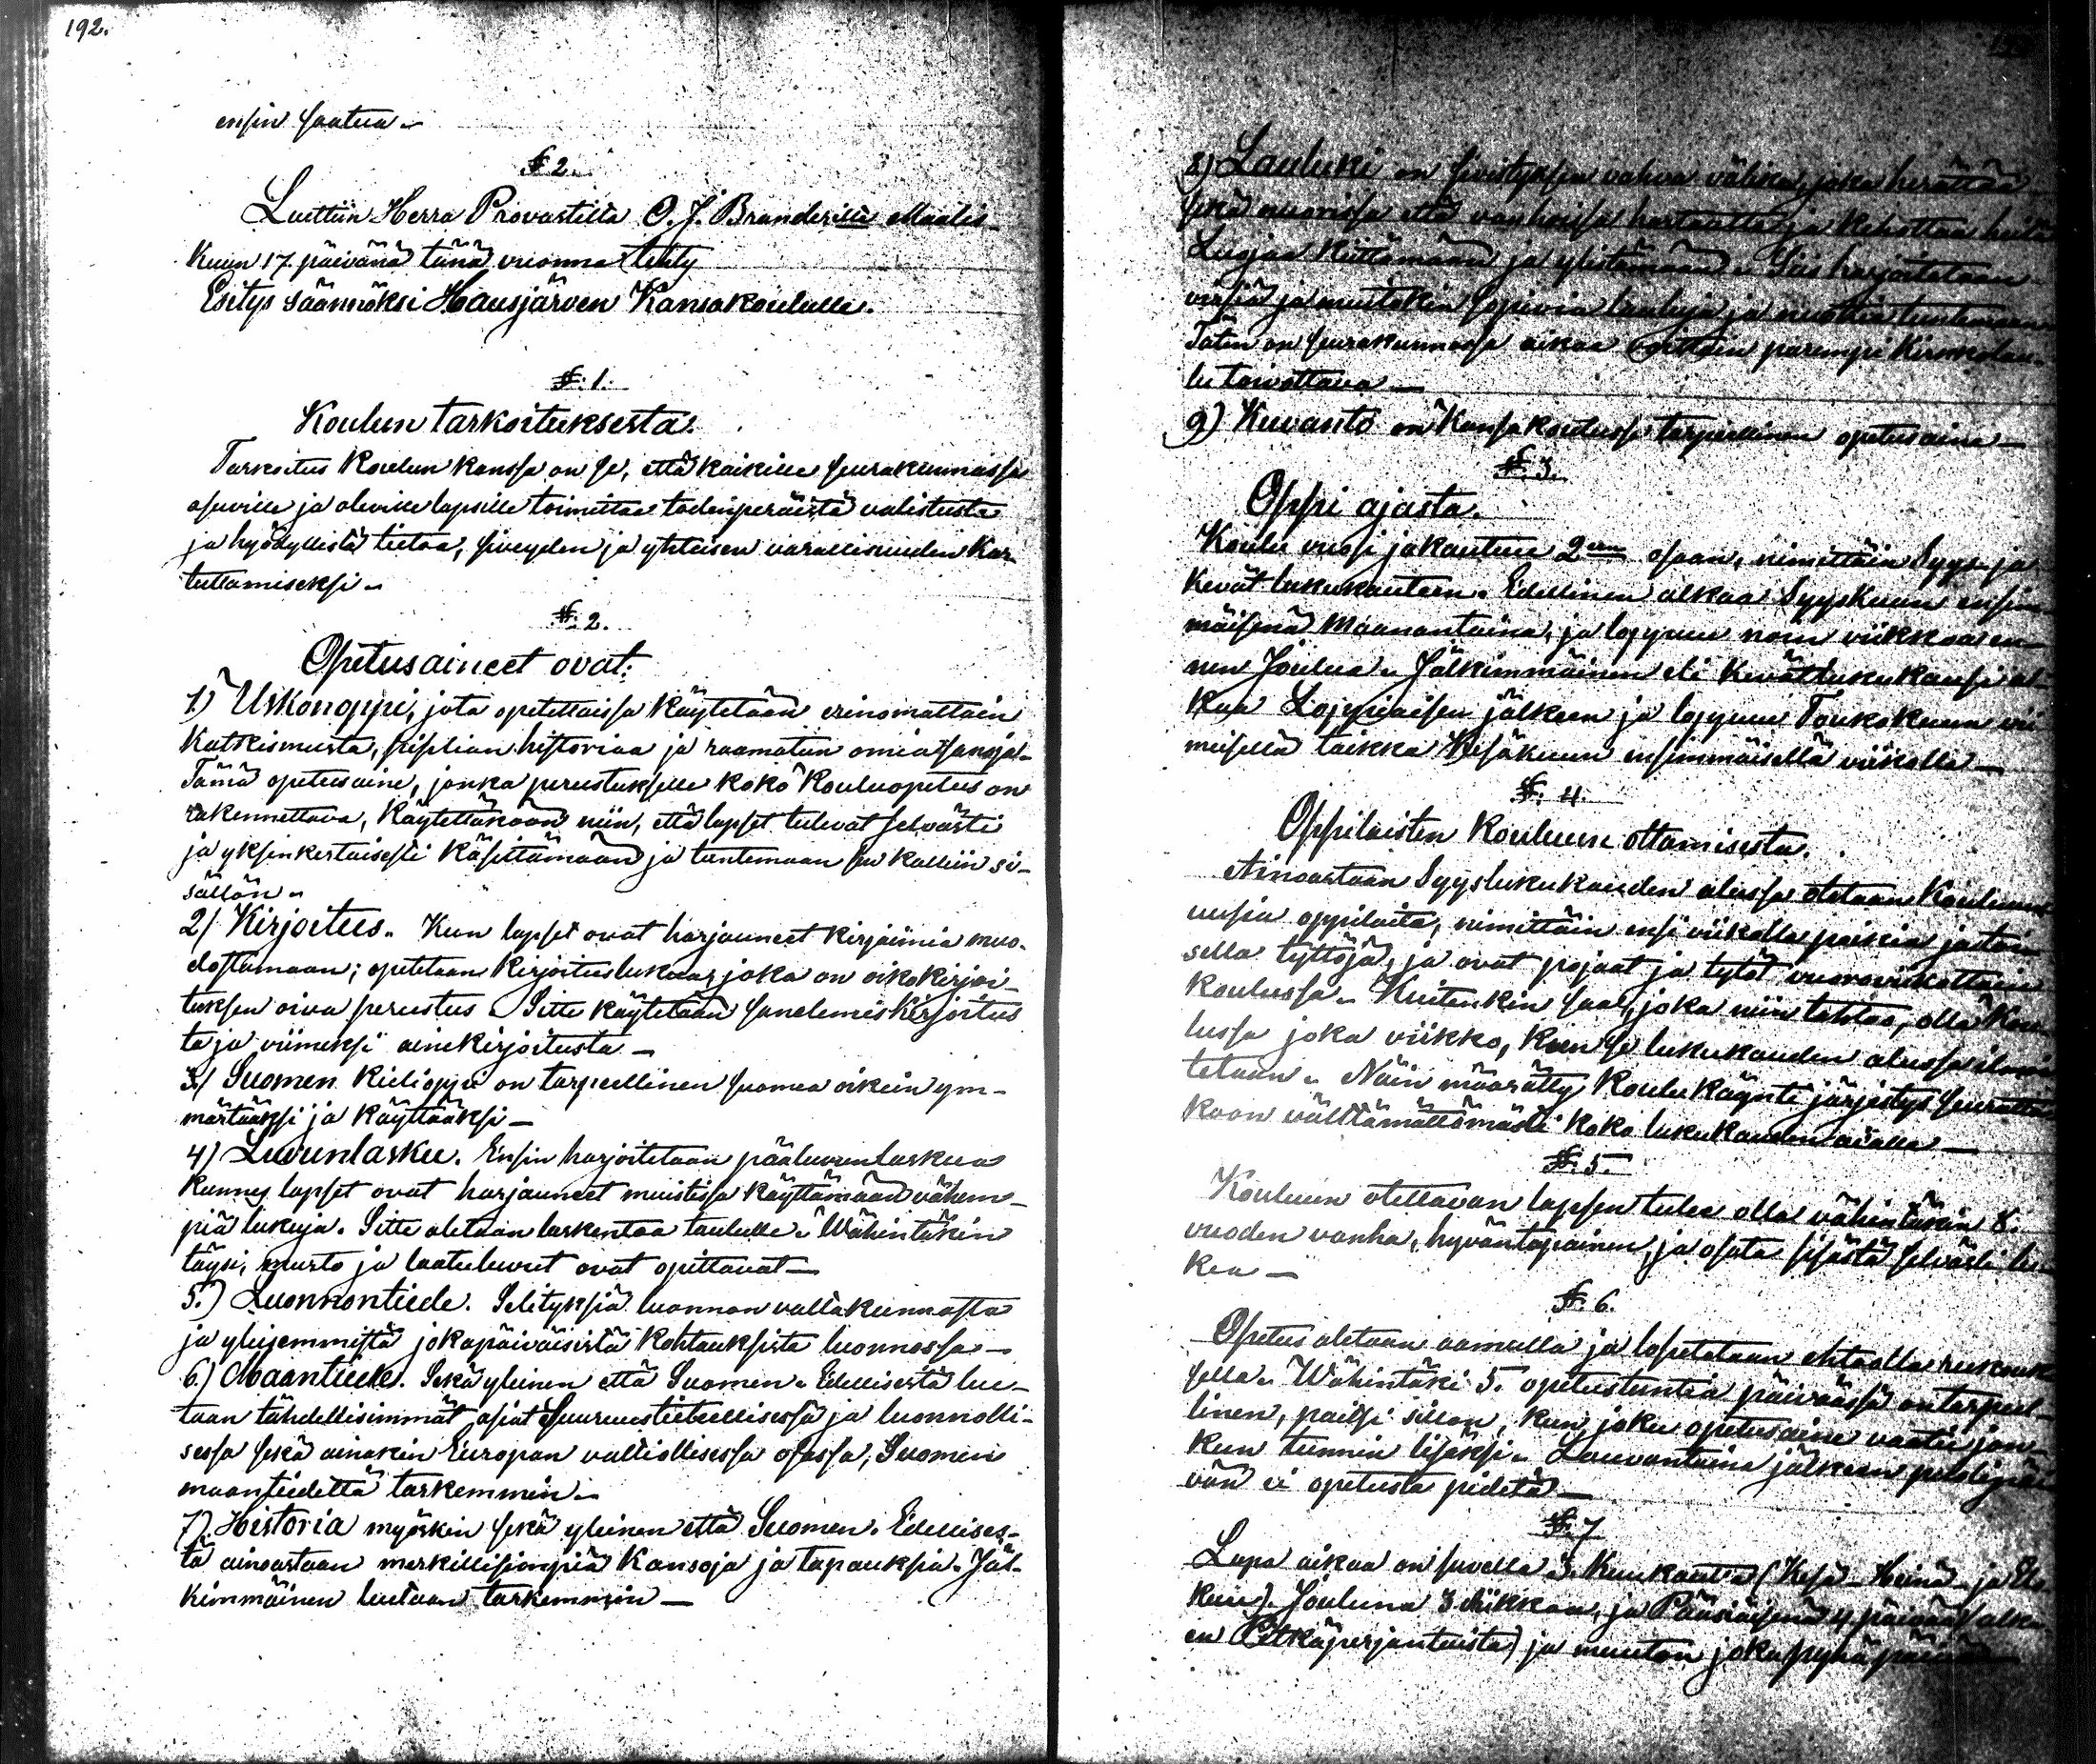 192.
ensin saatua.
§ 2.
Luettiin Herra Provastilta O. J. Branderilta Maalis-
kuun 17. päivänä tänä vuonna tehty
Esitys säännöksi Hausjärven Kansakoululle.
§. 1.
Koulun tarkoituksesta.
Tarkoitus koulun kanssa on se, että kaikille seurakunnassa
asuville ja oleville lapsille toimittaa todenperäistä valistusta
ja hyödyllistä tietoa, siveyden ja yhteisen varallisuuden kar-
tuttamiseksi.
§. 2.
Opetusaineet ovat:
1) Uskonoppi, jota opetettaissa käytetään erinomattain
katkismusta, piplian historiaa ja raamatun omia sanoja.
Tämä opetusaine, jonka perustukselle koko kouluopetus on
rakennettava, käytettäköön niin, että lapset tulevat selvästi
ja yksinkertaisesti käsittämään ja tuntemaan sen kalliin si-
sällön.
2) Kirjoitus. Kun lapset ovat harjauneet kirjaimia muo-
dostamaan; opetetaan kirjoituslukua, joka on oikokirjoi-
tuksen oiva perustus. Sitte käytetään sanelemiskirjoitus
ta ja viimeksi ainekirjoitusta —
3) Suomen kielioppi on tarpeellinen suomea oikein ym-
märtääksi ja käyttääksi —
4) Luvunlasku. Ensin harjoitetaan pääluvunlaskua
kunnes lapset ovat harjauneet muistissa käyttämään vähem-
piä lukuja. Sitte aletaan laskentaa taululle. Wähintäkin
täysi, murto ja laatuluvut ovat opittavat —
5.) Luonnontiede. Selityksiä luonnon valtakunnasta
ja yleisemmistä jokapäiväisistä kohtauksista luonnossa —
6.) Maantiede. Sekä yleinen että Suomen. Edellisestä lue-
taan tähdellisimmät asiat suuruustieteellisessä ja luonnolli-
sessa sekä ainakin Europan valtiollisessa osassa, Suomen
maantiedettä tarkemmin.
7). Historia myöskin sekä yleinen että Suomen. Edellises-
tä ainoastaan merkillisimpiä kansoja ja tapauksia. Jäl-
kimmäinen luetaan tarkemmin —
8) Lauluki on sivistyksen vahva välikap, joka herättää
sekä nuorissa että vanhoissa hartautta ja kehottaa heitä
Luojaa kiittämään ja ylistämään. Siis harjoitetaan
virsiä ja muitakin sopivia lauluja ja nuottia tuntemaan
Täten on seurakunnassa aikaa voittaen parempi kirkkolau-
lu toivottava —
9) Kuvanto on kansakoulussa tarpeellinen opetusaine —
§. 3.
Oppi ajasta.
Koulu vuosi jakautuu 2een osaan, nimittäin Syys- ja
kevät lukukauteen. Edellinen alkaa Syyskuun ensim-
mäisenä Maanantaina, ja loppuu noin viikkoa en-
nen Joulua. Jälkimmäinen eli kevätlukukausi al-
kaa Loppiaisen jälkeen ja loppuu Toukokuun vii
meisellä taikka Kesäkuun ensimmäisellä viikolla —
§. 4.
Oppilaisten kouluun ottamisesta.
Ainoastaan Syyslukukauden alussa otetaan kouluun
uusia oppilaita, nimittäin ensi viikolla poikia ja toi-
sella tyttöjä, ja ovat pojaat ja tytöt vuoroviikottain
koulussa. Kuitenkin saa, joka niin tahtoo, olla kou-
lussa joka viikko, kun se lukukauden alussa ilmoi
tetaan. Näin määrätty koulukäynti järjestys seuratta
koon välttämättömästi koko lukukauden ajalla —
§. 5.
Kouluun otettavan lapsen tulee olla vähintäkin 8.
vuoden vanha, hyväntapainen, ja osata sisästä selvästi lu-
kea —
§. 6.
Opetus aletaan aamulla ja lopetetaan ehtoolla rukouk
sella. Wähintäki 5. opetustuntia päivässä on tarpeel-
linen, paitsi silloin, kun joku opetusaine vaatii jon-
kun tunnin lisäksi. Lauvantaina jälkeen puolipäi
vän ei opetusta pidetä —
§. 7
Lupa aikaa on suvella 3. kuukautta (Kesä- Heinä- ja Elo
kuu). Jouluna 3 viikkoa, ja Pääsiäisenä 4 päivää (alka-
en Pitkäperjantaista) ja muuten joka pyhäpäivä